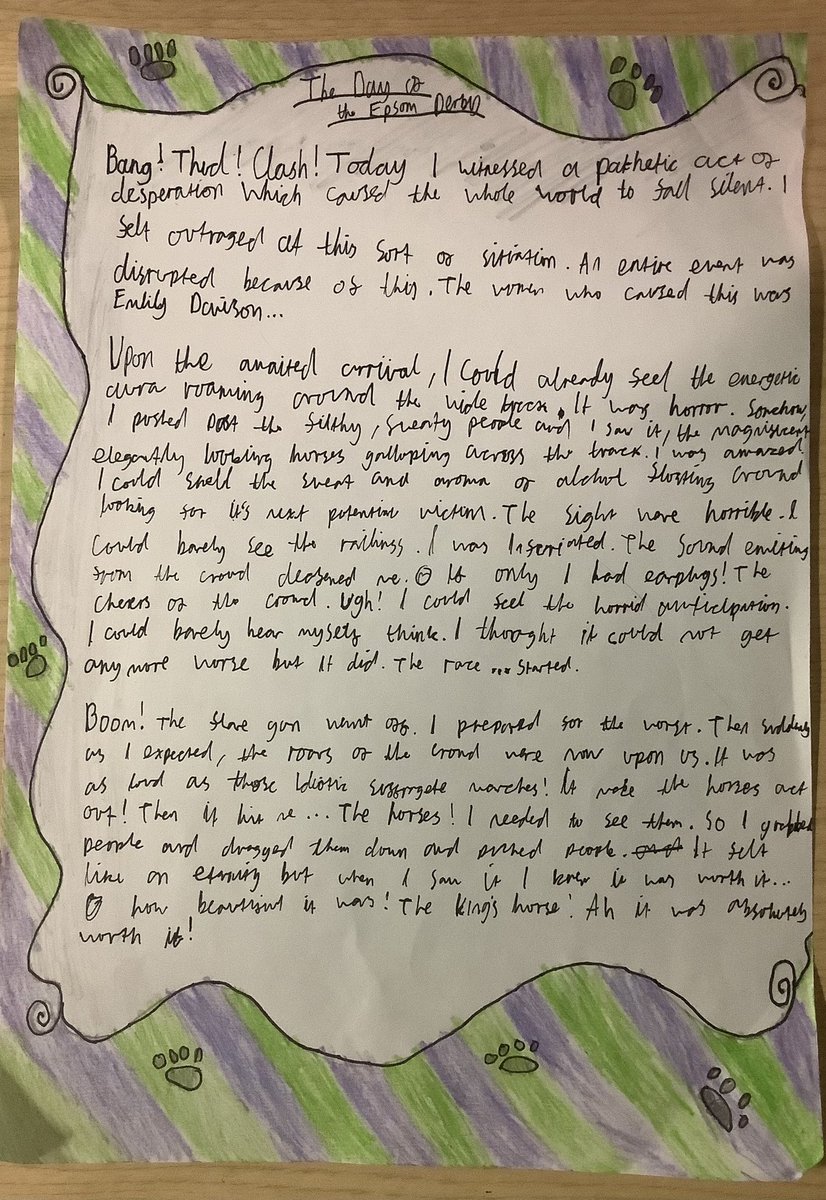 The Day of
the Epsom Derby
Bang! Thud! Clash! Today I witnessed a pathetic act of
desperation which caused the whole world to fall silent. I
felt outraged at this sort of sitiation. An entire event was
disrupted because of this. The women who caused this was
Emily Davison...
Upon the awaited arrival, I could already feel the energetic
aura roaming around the wide It was horror. Somehow,
I pushed past the filthy, sweaty people and I saw it, the magnificent
elegantly looking horses galloping across the track. I was amazed.
I could smell the sweat and aroma of alchol floating around
looking for it's next potential victim. The sight were horrible. I
could barely see the railings. I was The sound emiting
from the crowd deafened me. If only I had earplugs! The
cheers of the crowd. Ugh! I could feel the horrid anticipation.
I could barely hear myself think. I thought it could not get
any more worse but it did. The race... started.
Boom! The flare gun went off. I prepared for the worst. Then suddenly
as I expected, the roars of the crowd were now upon us. It was
as loud as those idiotic marches! It made the horses act
out! Then it hit me... The horses! I needed to see them. So I grabbed
people and dragged them down and pushed people. It felt
like an eternity but when I saw it I knew it was worth it...
O how beautiful it was! The King's horse! Ah it was absolutely
worth it!